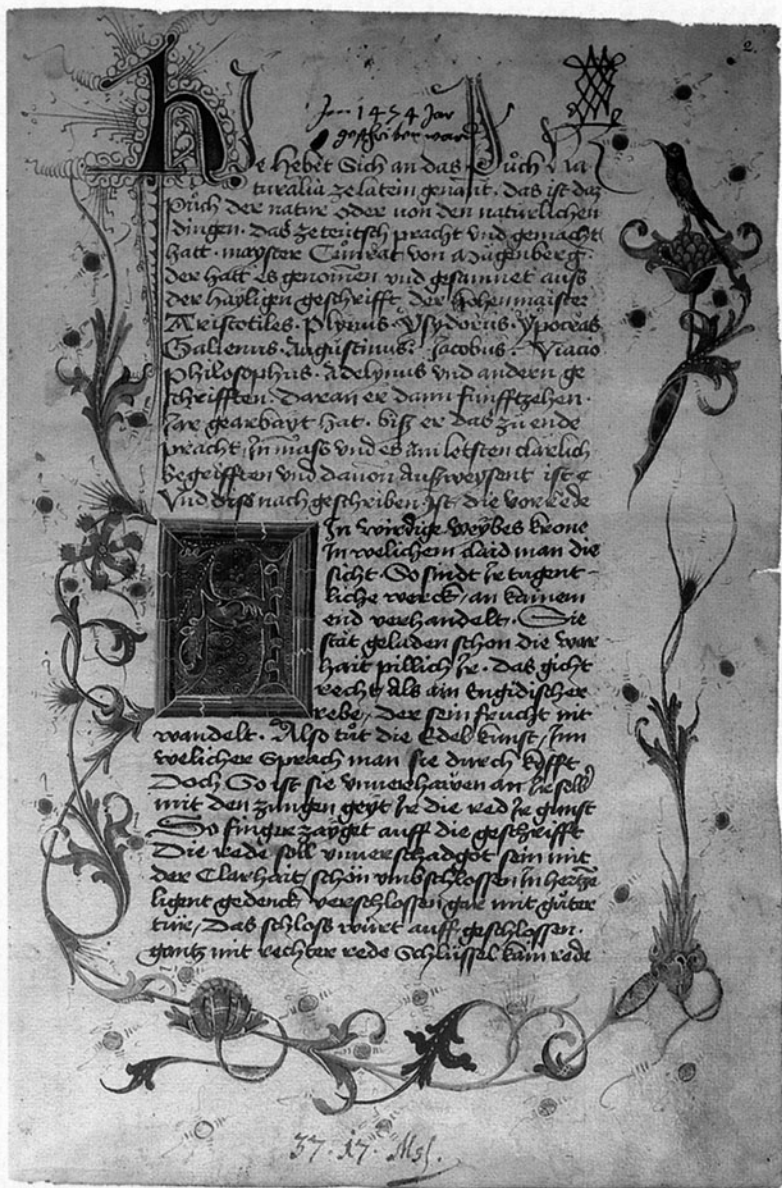 2.
Im 1454 Jar
geschriben ward
HJe hebet Sich an das Půch Na
turalia ze latein genant. das ist daz
Půch der nature oder von den natürlichen
dingen. das ze teütsch pracht vnd gemacht
hatt. mayster Cůnrat von Magenberg.
der hatt es genomen vnd gesamnet auss
der hayligen geschrifft der hohenmaister
Aristotiles. Plynius. Ysydorus. Ypocras
Gallenus. Augustinus. Jacobus. Viacio
philosophus. Adelynus vnd andern ge
schrifften. Daran er dann fünfftzehen.
Jare gearbayt hat. bisz er das zu ende
pracht. Jn mass vnd es am letsten clärlich
begriffen vnd dauon ausweysent ist
Vnd diss nach geschriben Jst die vorrede
Jn wirdige weybes krone
Jn welichem claid man die
sicht. So sindt Jr tugent-
liche werck/ an kainem
end verhandelt. Sie
stät geladen schon die war
hait pillich Jr. das gicht
recht/ Als ain Engidischer
rebe/ Der sein frucht nit
wandelt. Also tůt die Edel kunst/ Jnn
welicher Sprach man sie durch
Doch So ist sie vnuerhawen an Jr selb
mit den zungen geyt Jr die red Jr gunst
So finger zayget auff die geschrifft
Die rede soll vnuerschadgot sein mit
der Clarhait/ schön vmbschlossen Jn hertze
ligent gedenck/ verschlossen gar mit gůter
tür/ Das schloss würt auff geschlossen.
gantz mit rechter rede Schlüssel kain rede
37. 17. Msf.